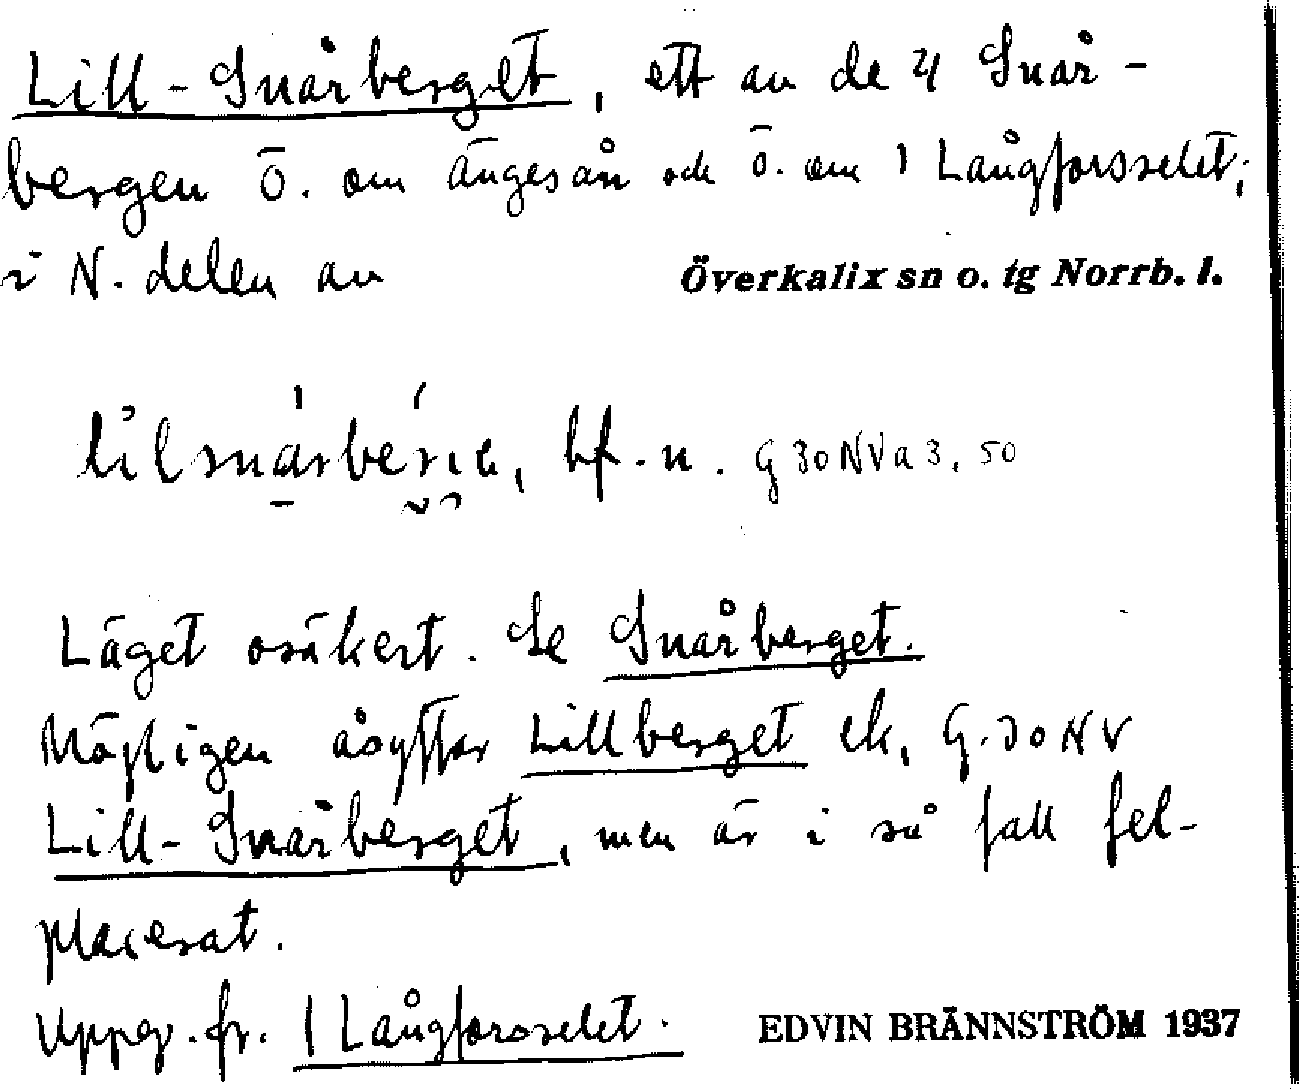 Lill-Snårberget, ett av de 4 Snår-
bergen Ö. om Ängesån och Ö. om 1 Långforsselet;
i N. delen av Överkalix sn o. tg Norrb. l.
bf. n. G 30 NV a 3, 50
Läget osäkert. Se Snårberget.
Möjligen åsyftar Lillberget ek. G. 30 NV
Lill-Snårberget, men är i så fall fel-
placerat.
Uppg. fr. 1 Långforsselet. EDVIN BRÄNNSTRÖM 1937